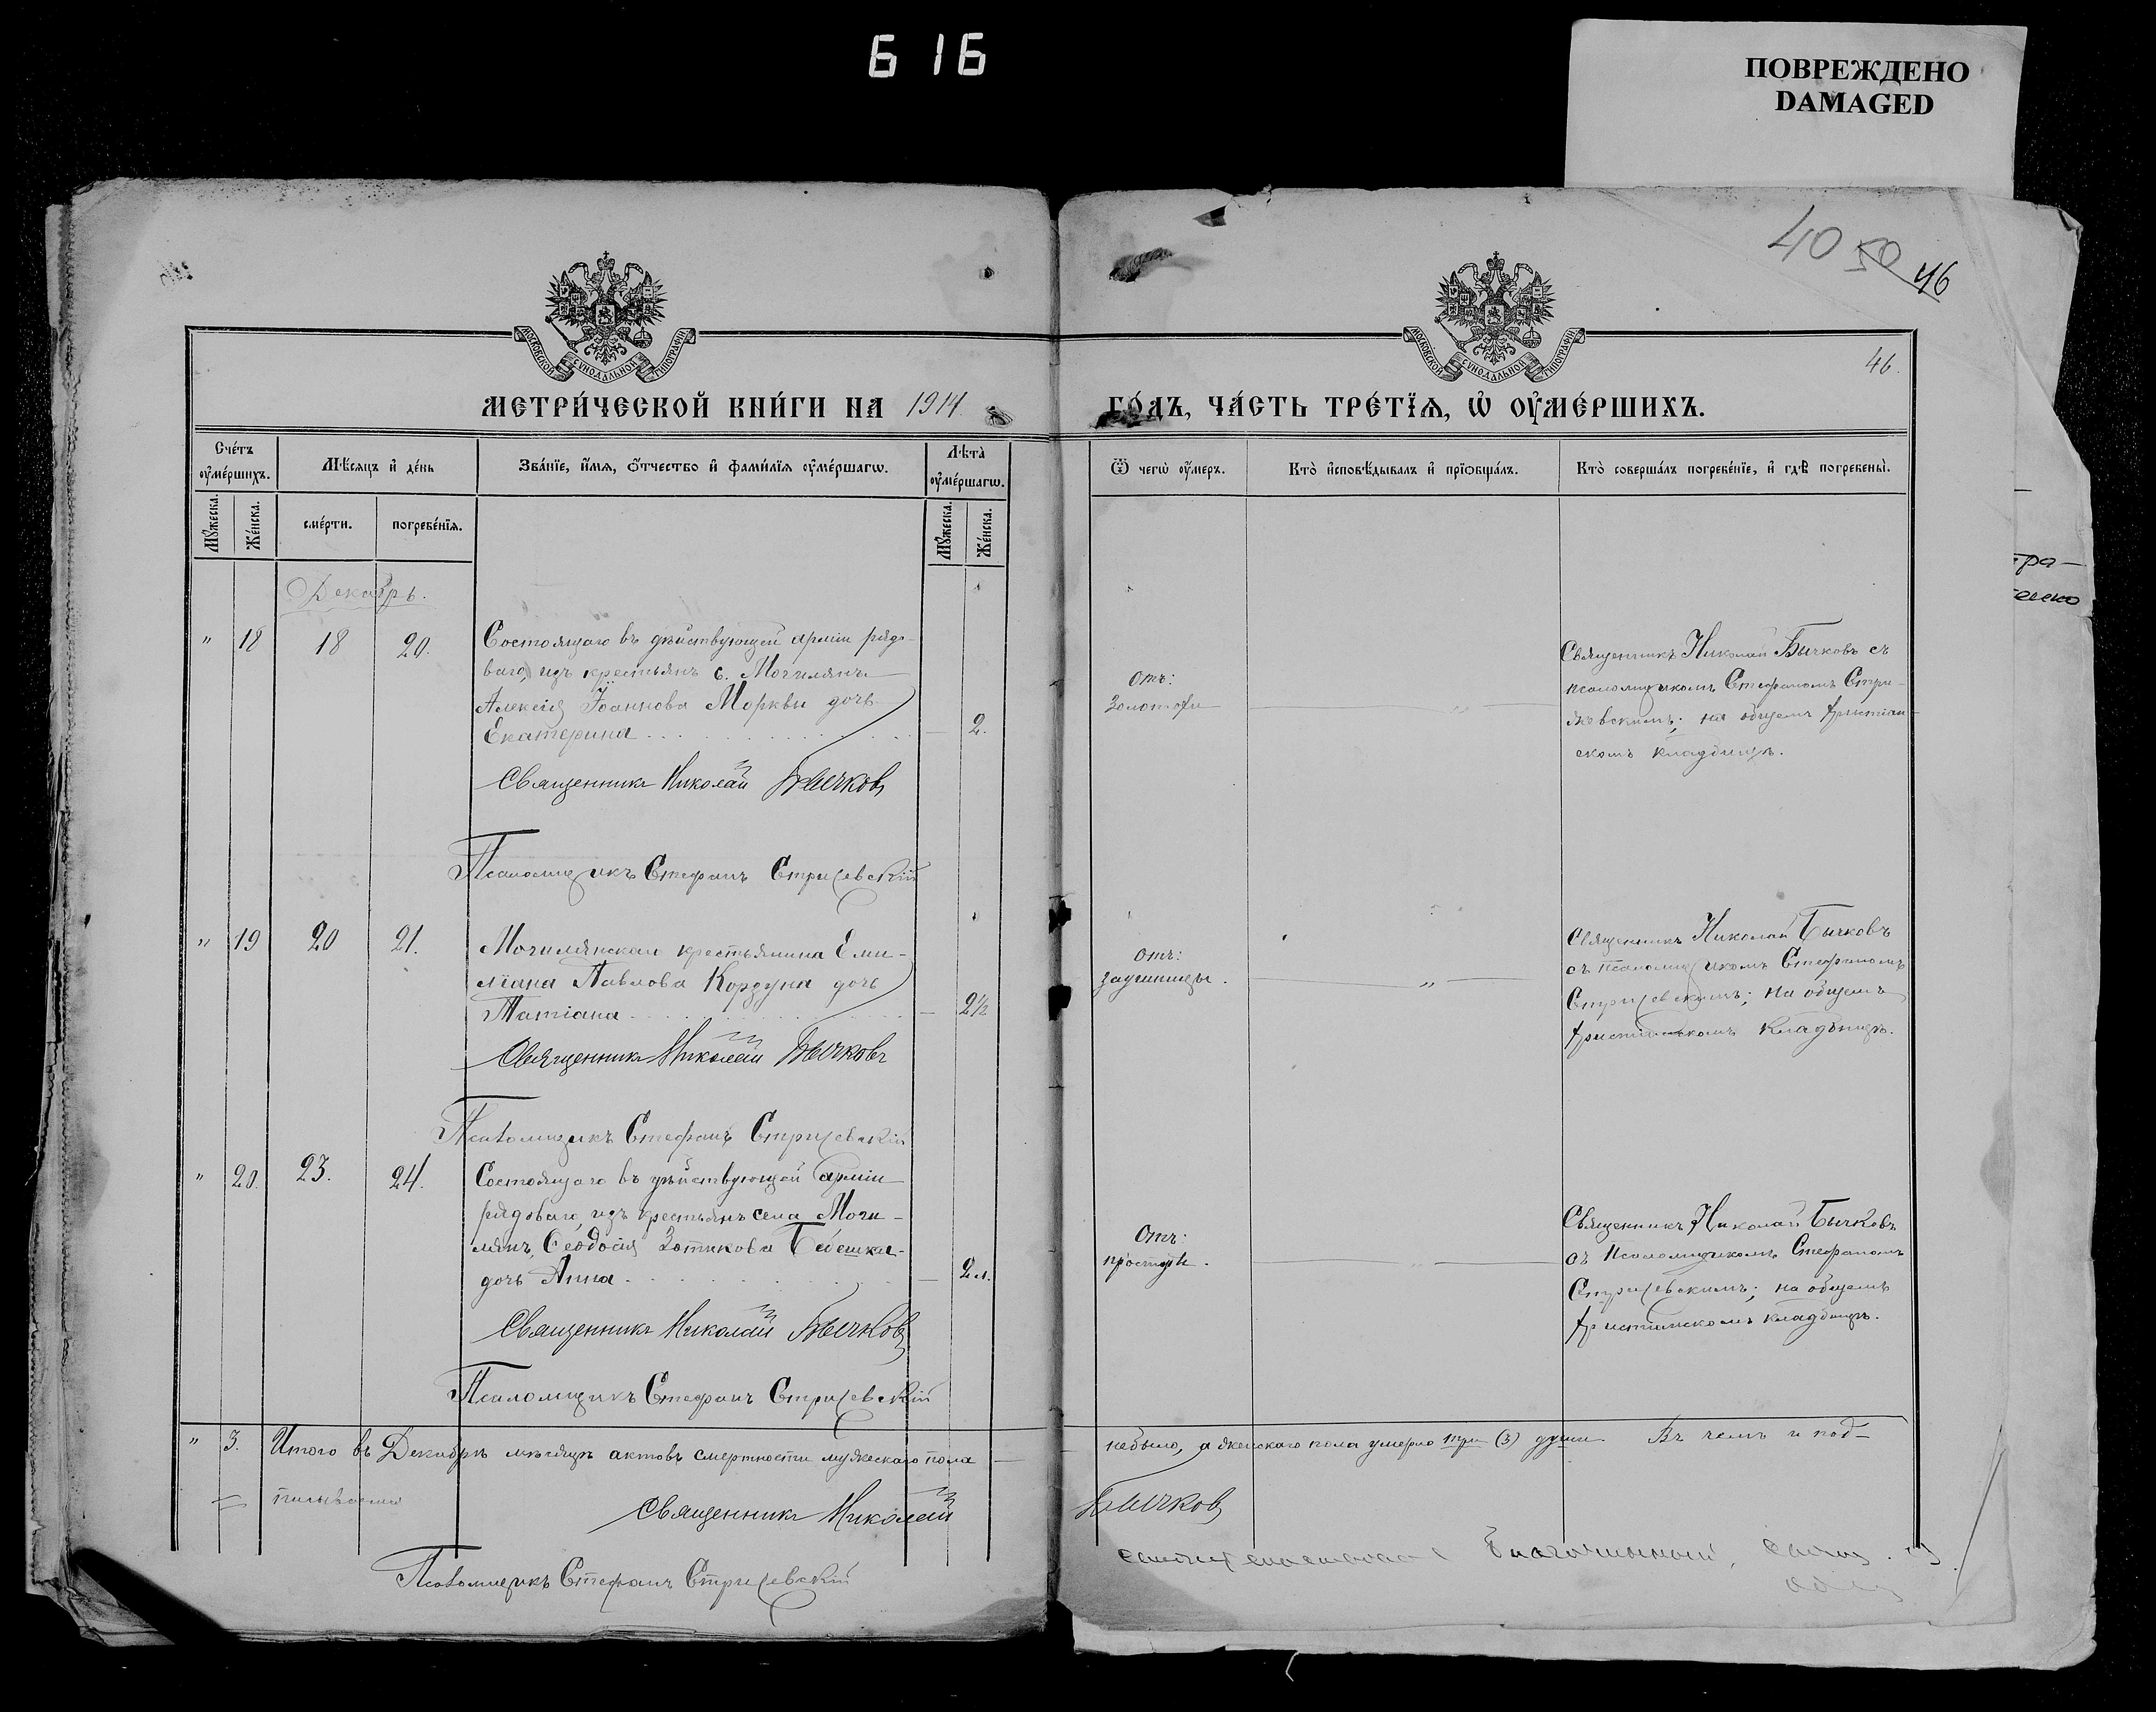 616
ПОВРЕЖДЕНО
DAMAGED
40 50 46
46.
МОСКОВСКОЙ СУНОДАЛЬНОЙ ТИПОГРАФІИ
МОСКОВСКОЙ СУНОДАЛЬНОЙ ТИПОГРАФІИ
МЕТРИ́ЧЕСКОЙ КНИ́ГИ НА 1914 ГО́ДЪ, ЧА́СТЬ ТРЕ́ТЇѦ, Ѽ ОУ҆МЕ́РШИХЪ.
Сче́тъ оу҆ме́ршихъ.
Мꙋ́жеска.
Же́нска.
Мѣ́сѧцъ и҆ де́нь
сме́рти.
погребе́нїѧ.
Зва́нїе, и҆́мѧ, ѻ҆́тчество и҆ фами́лїѧ оу҆ме́ршагѡ.
Лѣ́та оу҆ме́ршагѡ.
Мꙋ́жеска.
Же́нска.
Ѿ чегѡ̀ оу҆́меръ.
Кто̀ и҆сповѣ́дывалъ и҆ прїѡбща́лъ.
Кто̀ соверша́лъ погребе́нїе, и҆ гдѣ̀ погребены̀.
Декабрь.
" 18 18 20.
Состоящаго въ дѣйствующей арміи рядо-
ваго, изъ крестьянъ с. Могилянъ
Алексія Іоаннова Морквы дочь
Екатерина — 2.
Священникъ Николай Бычковъ
Псаломщикъ Стефанъ Стрижевскій
отъ:
золотухи
— " —
Священникъ Николай Бычковъ съ
псаломщикомъ Стефаномъ Стри-
жевскимъ; на общемъ христіан-
скомъ кладбищѣ.
" 19 20 21.
Могилянскаго крестьянина Еми-
ліана Павлова Кордуна дочь
Татіана — 2½
Священникъ Николай Бычковъ
Псаломщикъ Стефанъ Стрижевскій
отъ:
заушницы.
— " —
Священникъ Николай Бычковъ
съ псаломщикомъ Стефаномъ
Стрижевскимъ; на общемъ
христіанскомъ кладбищѣ.
" 20. 23. 24.
Состоящаго въ дѣйствующей арміи
рядоваго, изъ крестьянъ села Моги-
лянъ, Ѳеодосія Зотикова Бебешки
дочь Анна — 2 л.
Священникъ Николай Бычковъ
Псаломщикъ Стефанъ Стрижевскій
Отъ:
простуды.
— " —
Священникъ Николай Бычковъ
съ псаломщикомъ Стефаномъ
Стрижевскимъ; на общемъ
христіанскомъ кладбищѣ.
" 3. Итого въ Декабрѣ мѣсяцѣ актовъ смертности мужескаго пола — небыло, а женскаго пола умерло три (3) души. Въ чемъ и под-
= писываемся
Священникъ Николай Бычковъ
Псаломщикъ Стефанъ Стрижевскій
Благочинный,